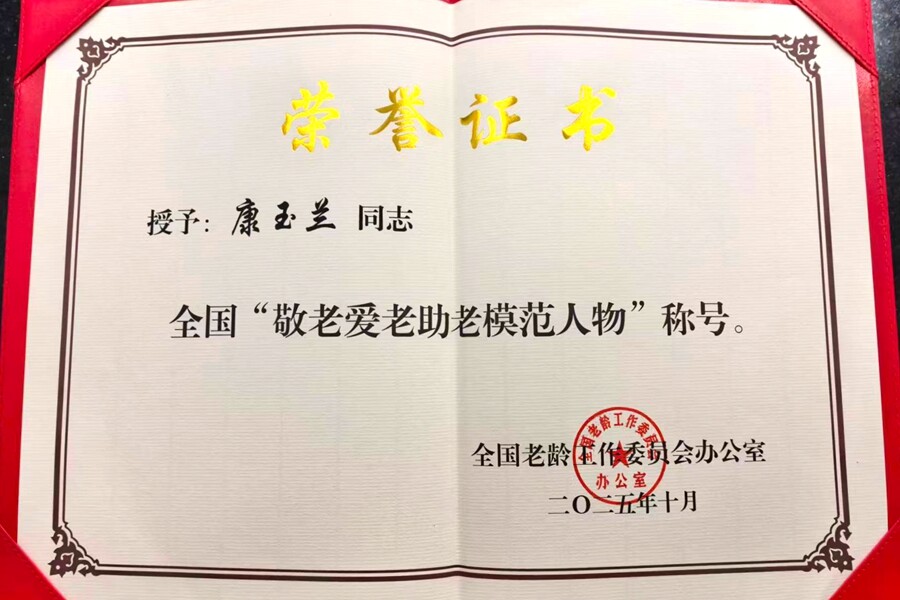 荣誉证书
授予：康玉兰 同志
全国“敬老爱老助老模范人物”称号。
全国老龄工作委员会办公室
二〇二五年十月
全国老龄工作委员会
办公室